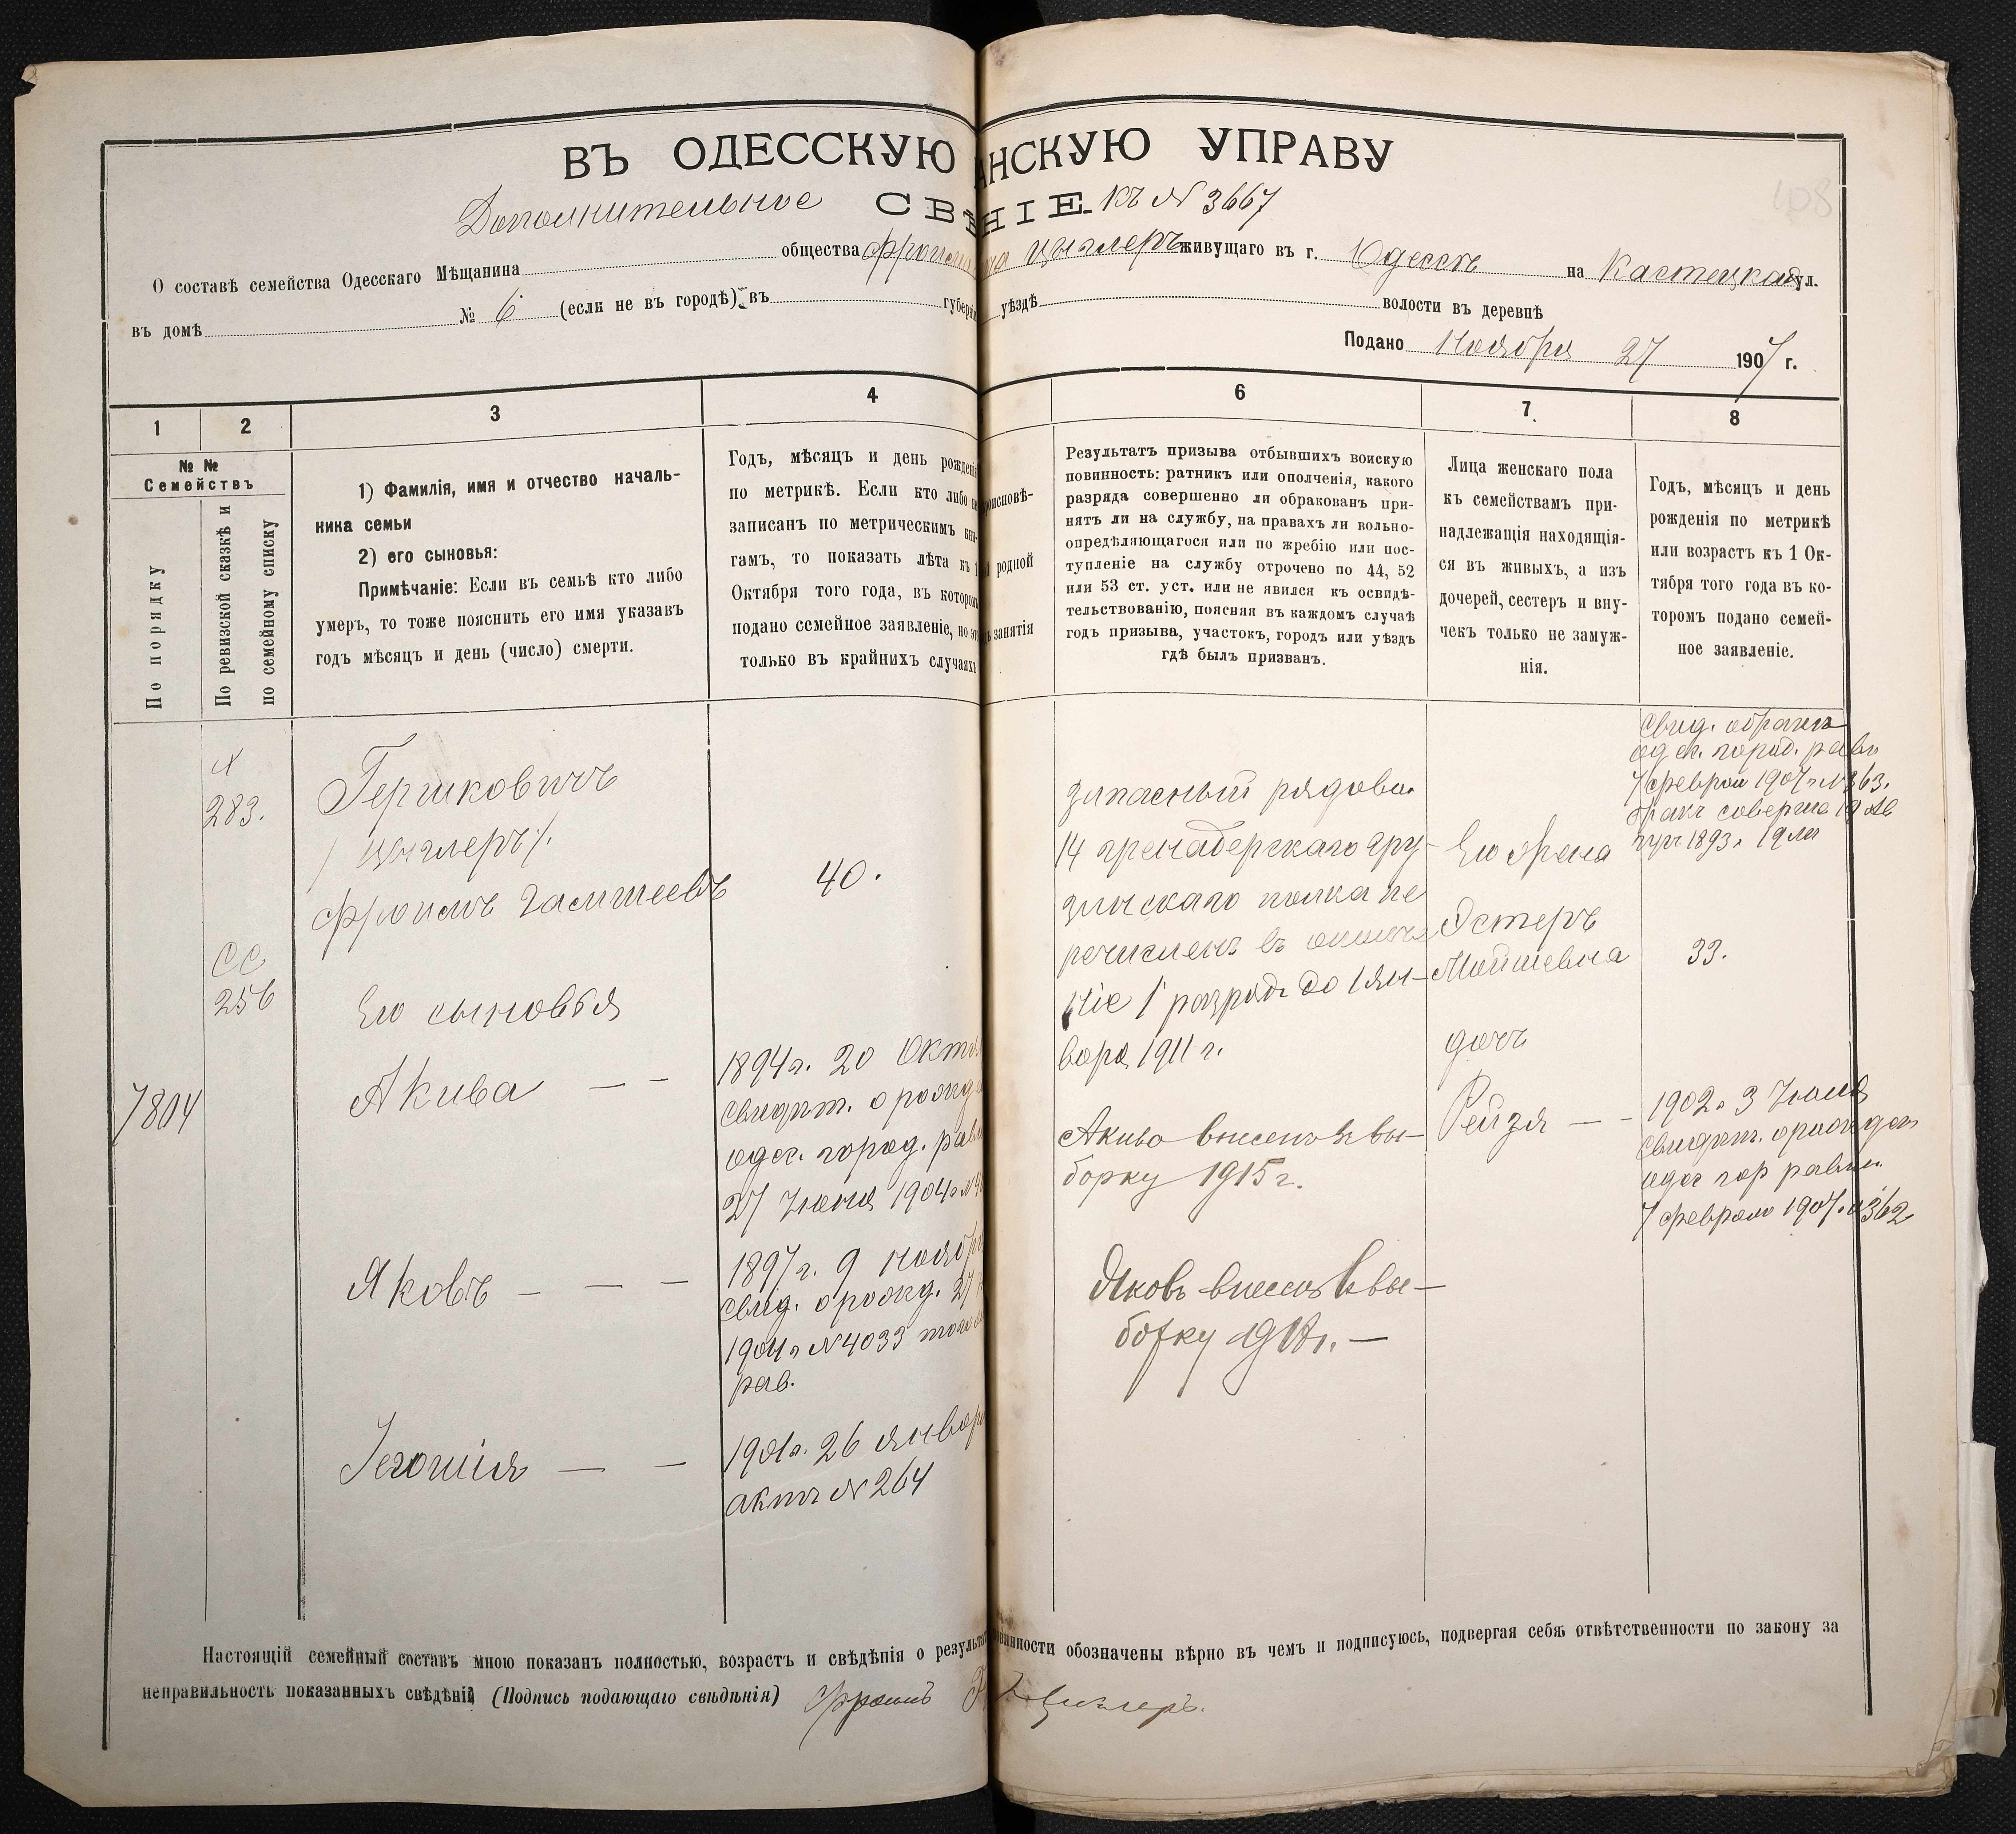 ВЪ ОДЕССКУЮ АНСКУЮ УПРАВУ
Дополнительное СВѢ НІЕ. къ № 3667
О составѣ семейства Одесскаго Мѣщанина общества Фроима Цыглеръ живущаго въ г. Одессѣ на Костецкая ул.
въ домѣ № 6 (если не въ городѣ) въ губерні уѣздѣ волости въ деревнѣ
Подано Ноября 27 1907 г.
1 2 3 4 6 7 8
№ №
Семействъ
По порядку
По ревизской сказкѣ и
по семейному списку
1) Фамилія, имя и отчество началь-
ника семьи
2) его сыновья:
Примѣчаніе: Если въ семьѣ кто либо
умеръ, то тоже пояснить его имя указавъ
годъ мѣсяцъ и день (число) смерти.
Годъ, мѣсяцъ и день рожденія
по метрикѣ. Если кто либо не
записанъ по метрическимъ кни-
гамъ, то показать лѣта къ 1
Октября того года, въ которомъ
подано семейное заявленіе, но это
только въ крайнихъ случаяхъ
роисповѣ-
родной
занятія
Результатъ призыва отбывшихъ воискую
повинность: ратникъ или ополченія, какого
разряда совершенно ли обракованъ при-
нятъ ли на службу, на правахъ ли вольно-
опредѣляющагося или по жребію или пос-
тупленіе на службу отрочено по 44, 52
или 53 ст. уст. или не явился къ освидѣ-
тельствованію, поясняя въ каждомъ случаѣ
годъ призыва, участокъ, городъ или уѣздъ
гдѣ былъ призванъ.
Лица женскаго пола
къ семействамъ при-
надлежащія находящія-
ся въ живыхъ, а изъ
дочерей, сестеръ и вну-
чекъ только не замуж-
нія.
Годъ, мѣсяцъ и день
рожденія по метрикѣ
или возрастъ къ 1 Ок-
тября того года въ ко-
торомъ подано семей-
ное заявленіе.
283.
СС
256
7804
Гершковичъ
/ Цыглеръ /.
Фроимъ Гамшеевъ
Его сыновья
Акива — —
Яковъ — — —
Іегошія — —
40.
1894 г. 20 Октя
свидѣт. о рожд
одес. город. рав
27 Июня 1904 г. №
1897 г. 9 Нояб
свид. о рожд. 27
1904 г. № 4033 того
рав.
1901 г. 26 Январ
актъ № 264
запасный рядово
14 гренадерскаго Гру-
зинскаго полка пе
речисленъ въ ополче
ніе 1 разряд до 1 Ян-
варя 1911 г.
Акива внесенъ въ вы-
борку 1915 г.
Яковъ внесенъ въ вы-
борку 1918 г. —
Его жена
Эстеръ
Мойшевна
дочь
Рейзя — -
свид. о бракѣ
одес. город. рави
7 Февраля 1907 г. № 363.
бракъ соверше 19 Ав
густ 1893 г. 19 лет
33.
1902 г. 3 Июля
свидѣт. о рожден
одес гор равин.
7 Февраля 1907 г. № 362
Настоящій семейный составъ мною показанъ полностью, возрастъ и свѣдѣнія о результа винности обозначены вѣрно въ чемъ и подписуюсь, подвергая себя отвѣтственности по закону за
неправильность показанныхъ свѣдѣній (Подпись подающаго свѣдѣнія) Фроимъ Г Цыглеръ.